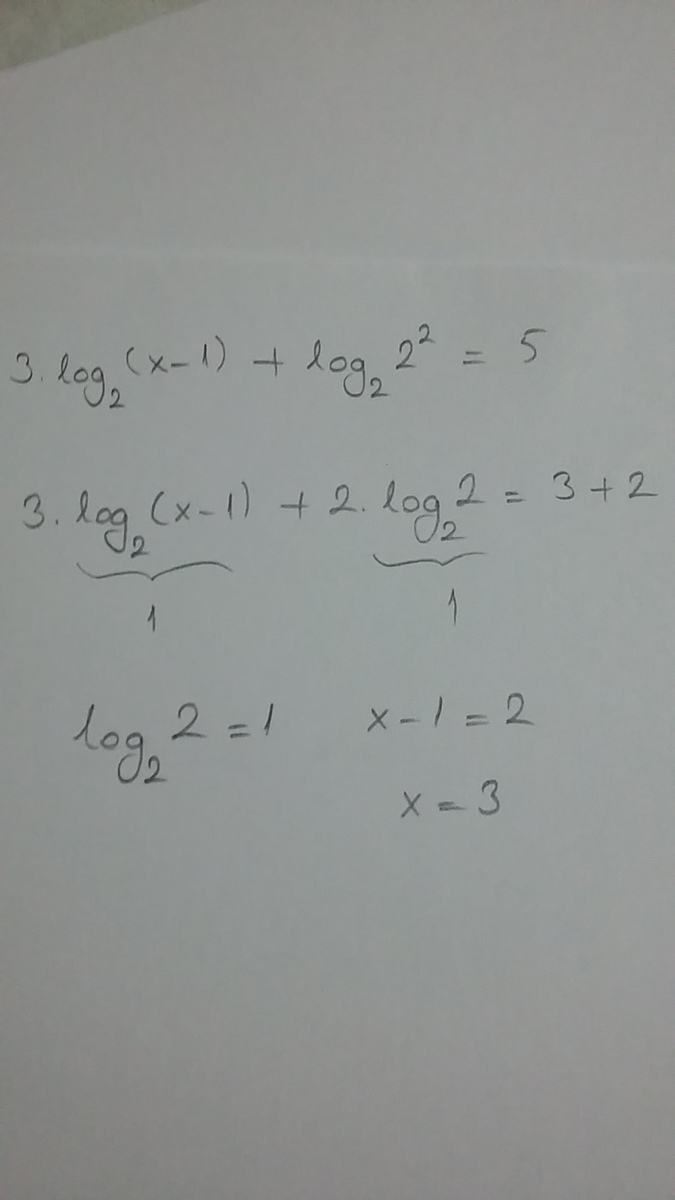 3. log₂(x-1) + log₂ 2² = 5
3. log₂(x-1) + 2. log₂ 2 = 3+2
1 1
log₂ 2 = 1 x-1 = 2
x = 3